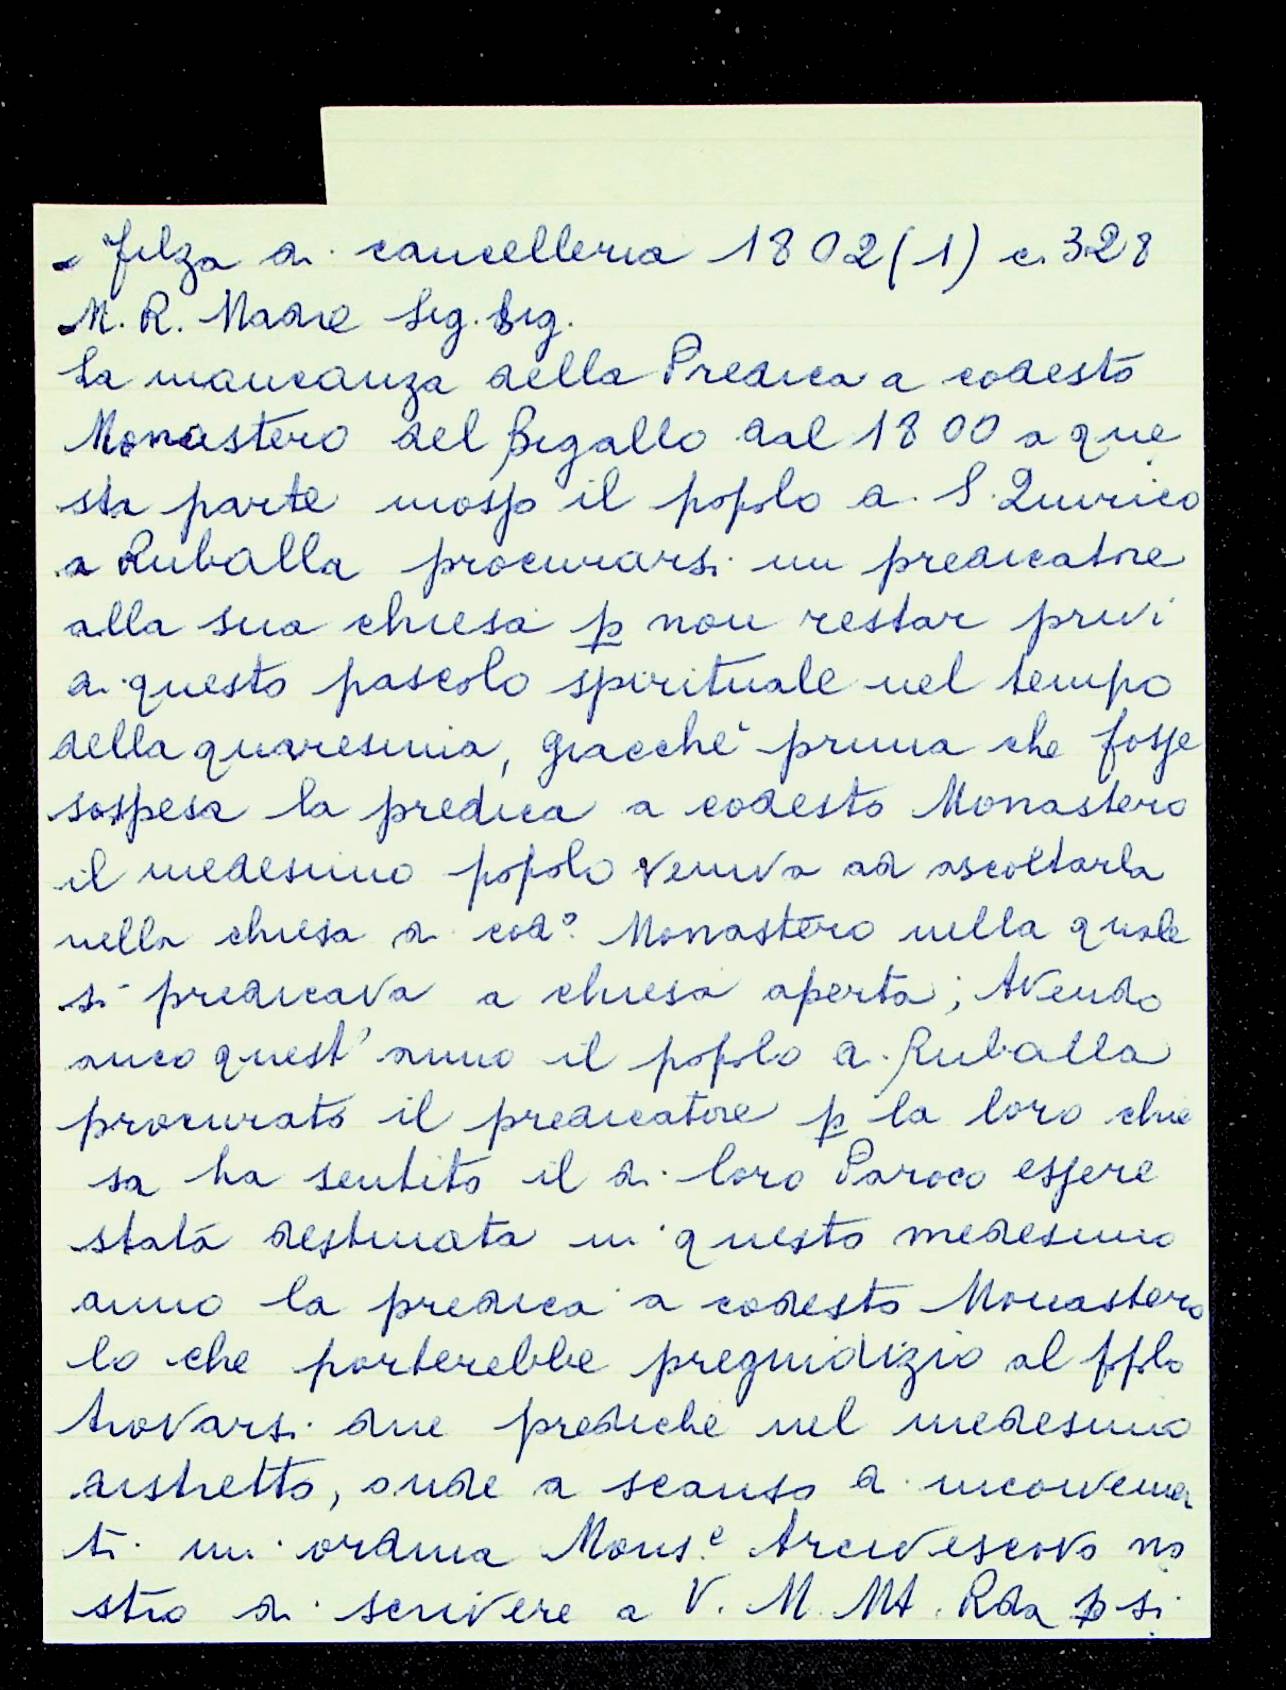 - Filza di cancelleria 1802 (1) c. 328
M. R. Madre Sig. Sig.
La mancanza della Predica a codesto
Monastero del Bigallo dal 1800 a que
sta parte mosse il popolo di S. Quirico
a Ruballa procurarsi un predicatore
alla sua chiesa p non restar privi
di questo pascolo spirituale nel tempo
della quaresima, giacchè prima che fosse
sospesa la predica a codesto Monastero
il medesimo popolo veniva ad ascoltarla
nella chiesa di cod.º Monastero nella quale
si predicava a chiesa aperta; Avendo
anco quest'anno il popolo di Ruballa
procurato il predicatore p la loro chie
sa ha sentito il di loro Paroco essere
stata destinata in questo medesimo
anno la predica a codesto Monastero
lo che porterebbe pregiudizio al pplo
trovarsi due prediche nel medesimo
distretto, onde a scanso di inconvenien
ti mi ordina Mons.e Arcivescovo no
stro di scrivere a V. M. Mt. Rda p si